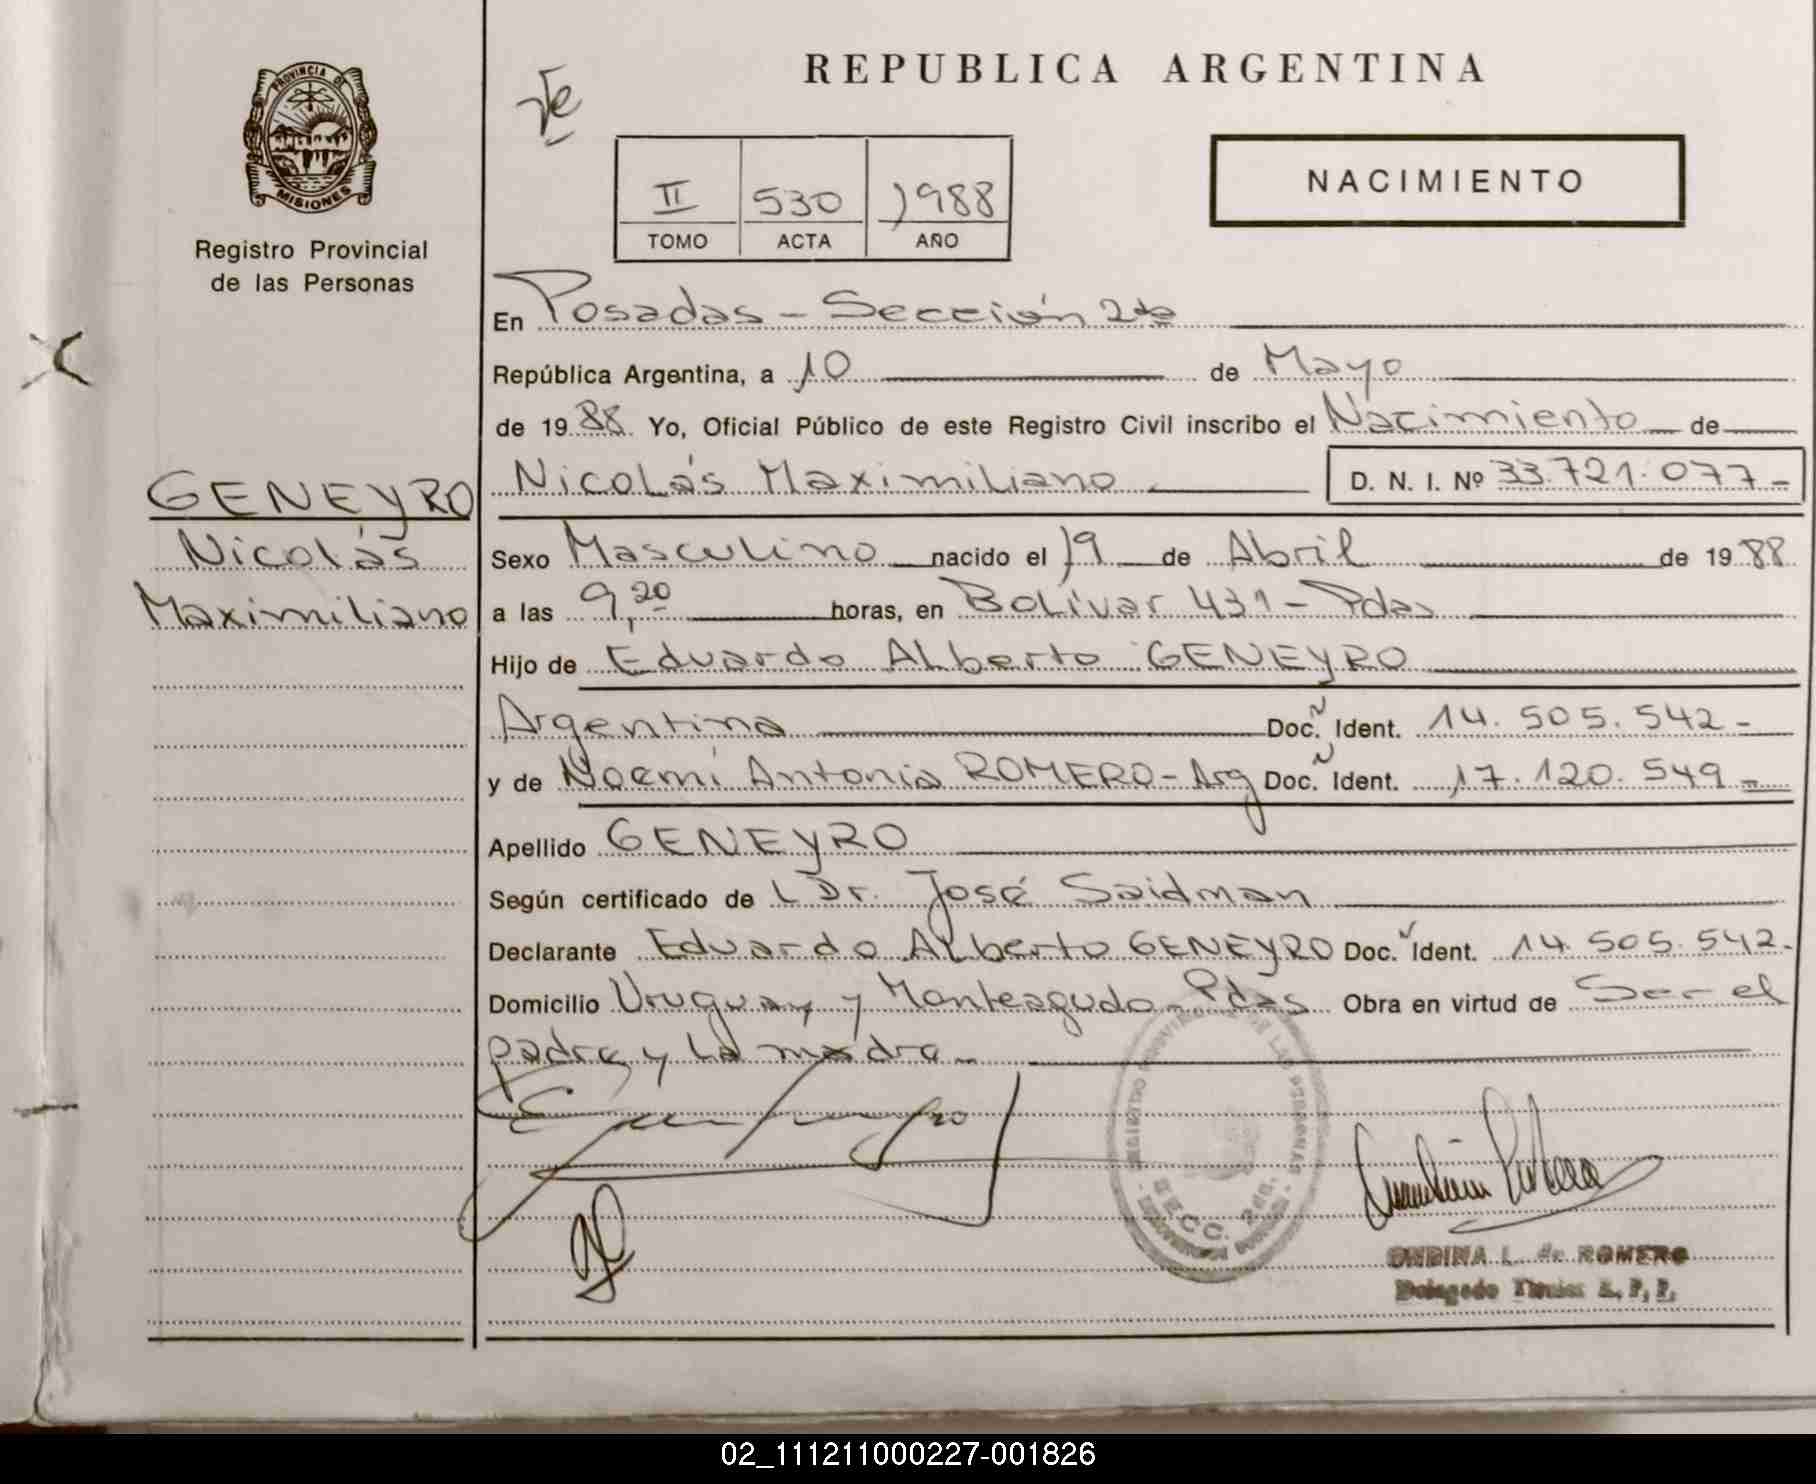 PROVINCIA DE
MISIONES
Registro Provincial
de las Personas
GENEYRO
Nicolás
Maximiliano
REPUBLICA ARGENTINA
II 530 1988
TOMO ACTA AÑO
NACIMIENTO
En Posadas - Sección 2da
República Argentina, a 10 de Mayo
de 1988. Yo, Oficial Público de este Registro Civil inscribo el Nacimiento de
Nicolás Maximiliano D. N. I. Nº 33.721.077-
Sexo Masculino nacido el 19 de Abril de 1988
a las 9,20 horas, en Bolívar 431 - Pdas
Hijo de Eduardo Alberto GENEYRO
Argentina Doc. Ident. 14.505.542-
y de Noemí Antonia ROMERO - Arg Doc. Ident. 17.120.549-
Apellido GENEYRO
Según certificado de L Dr. José Saidman
Declarante Eduardo Alberto GENEYRO Doc. Ident. 14.505.542.
Domicilio Uruguay y Monteagudo - Pdas Obra en virtud de Ser el
padre y la madre -
SECC. 2da.
ONDINA L. de ROMERO
Delegado Titular R. P. P.
02_111211000227-001826